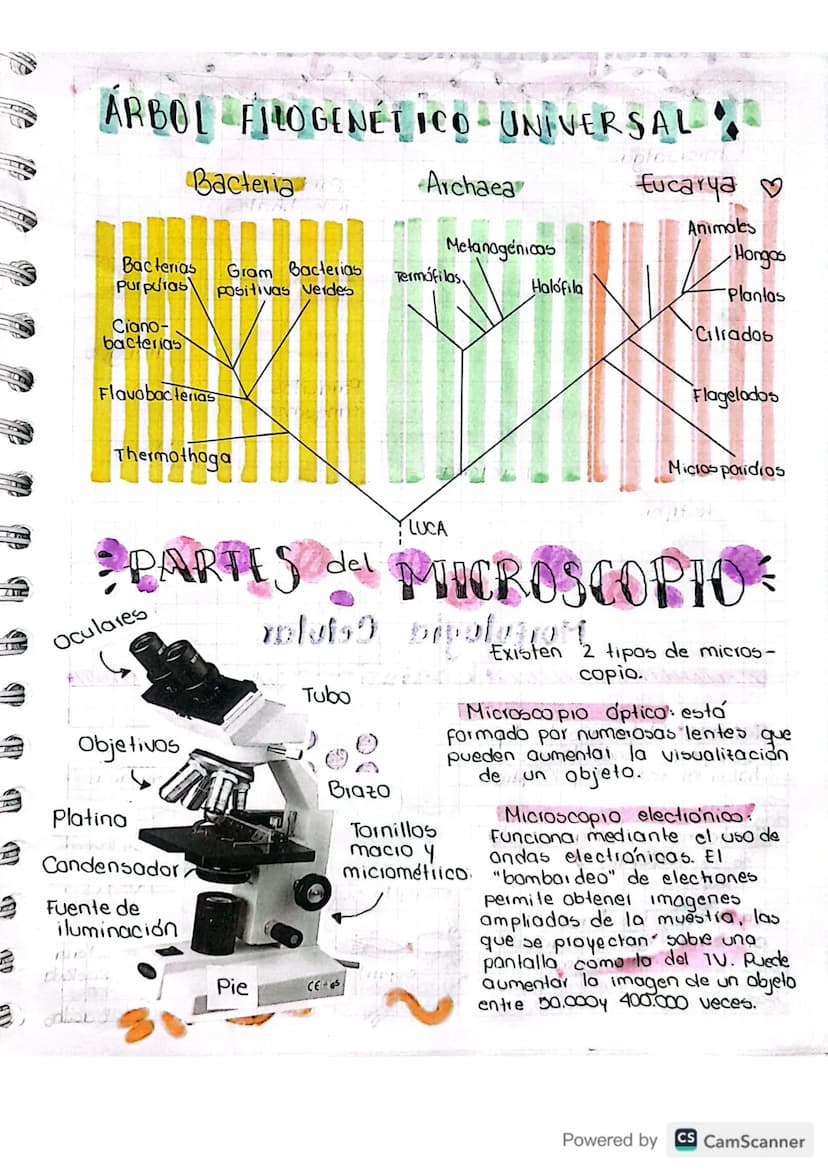 ÁRBOL FILOGENÉTICO UNIVERSAL
Bacteria
Archaea
Eucarya
Bacterias
purpúras
Gram
positivas
Bacterias
verdes
Ciano-
bacterias
Flavobacterias
Thermothoga
Metanogénicas
Termófilas
Halófila
Animales
Hongos
Plantas
Ciliados
Flagelados
Microsporidios
LUCA
PARTES del MICROSCOPIO
Morfología Celular
Oculares
Tubo
Objetivos
Brazo
Platina
Tornillos
macro y
micrométrico.
Condensador
Fuente de
iluminación
Pie
CE
Existen 2 tipos de micros-
copio.
Microscopio óptico: está
formado por numerosas lentes que
pueden aumentar la visualización
de un objeto.
Microscopio electrónico:
Funciona mediante el uso de
ondas electrónicas. El
"bombardeo" de electrones
permite obtener imagenes
ampliadas de la muestra, las
que se proyectan sobre una
pantalla como la del TV. Puede
aumentar la imagen de un objeto
entre 50.000 y 400.000 veces.
Powered by CS CamScanner